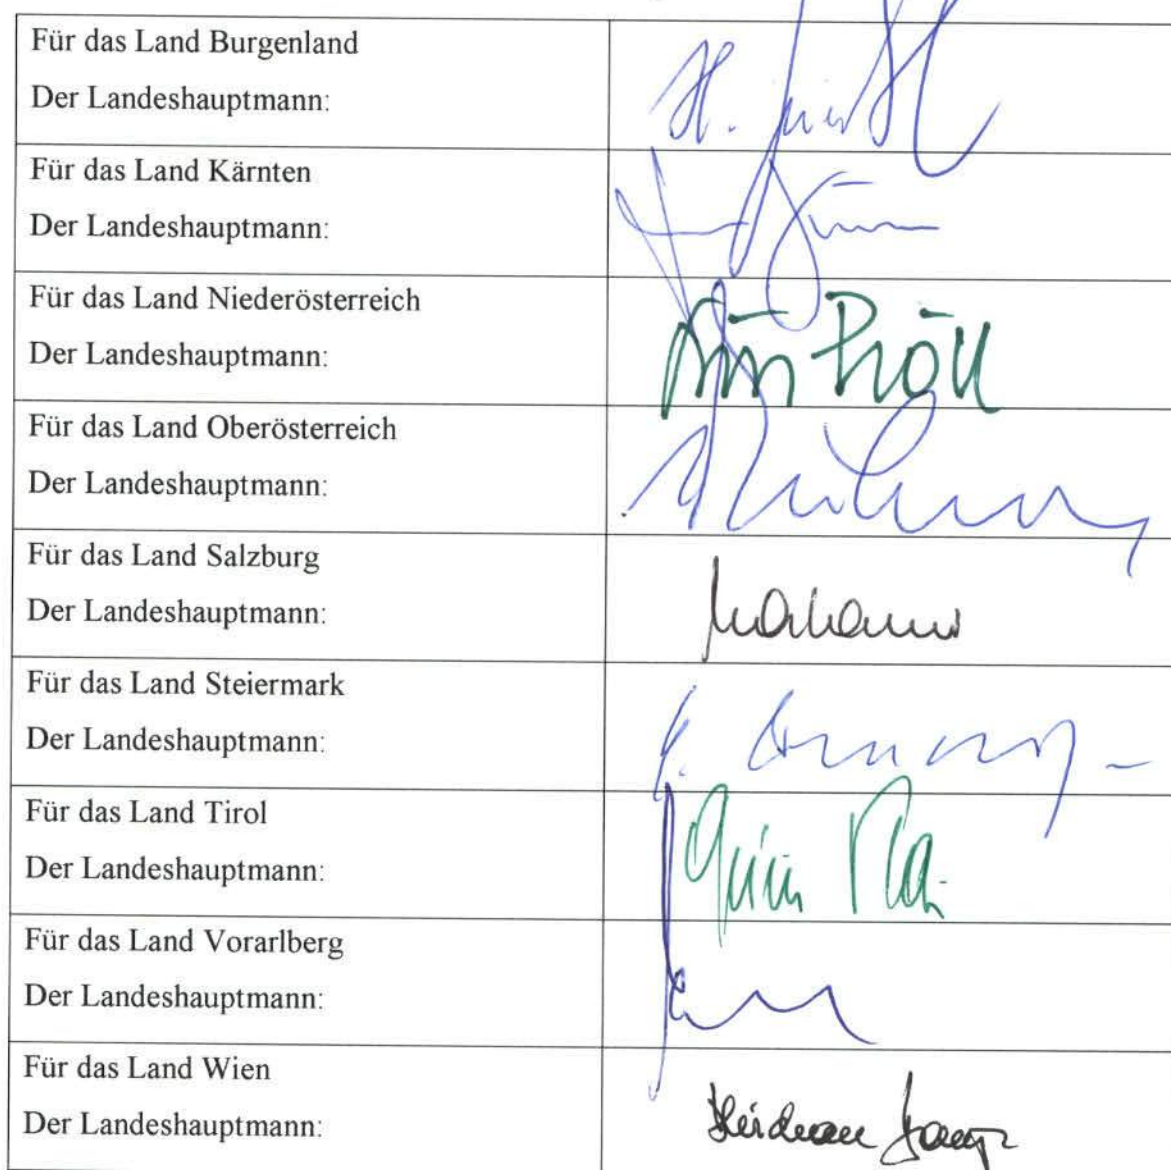 Für das Land Burgenland
Der Landeshauptmann:
Für das Land Kärnten
Der Landeshauptmann:
Für das Land Niederösterreich
Der Landeshauptmann:
Pröll
Für das Land Oberösterreich
Der Landeshauptmann:
Für das Land Salzburg
Der Landeshauptmann:
Für das Land Steiermark
Der Landeshauptmann:
Für das Land Tirol
Der Landeshauptmann:
Für das Land Vorarlberg
Der Landeshauptmann:
Für das Land Wien
Der Landeshauptmann: